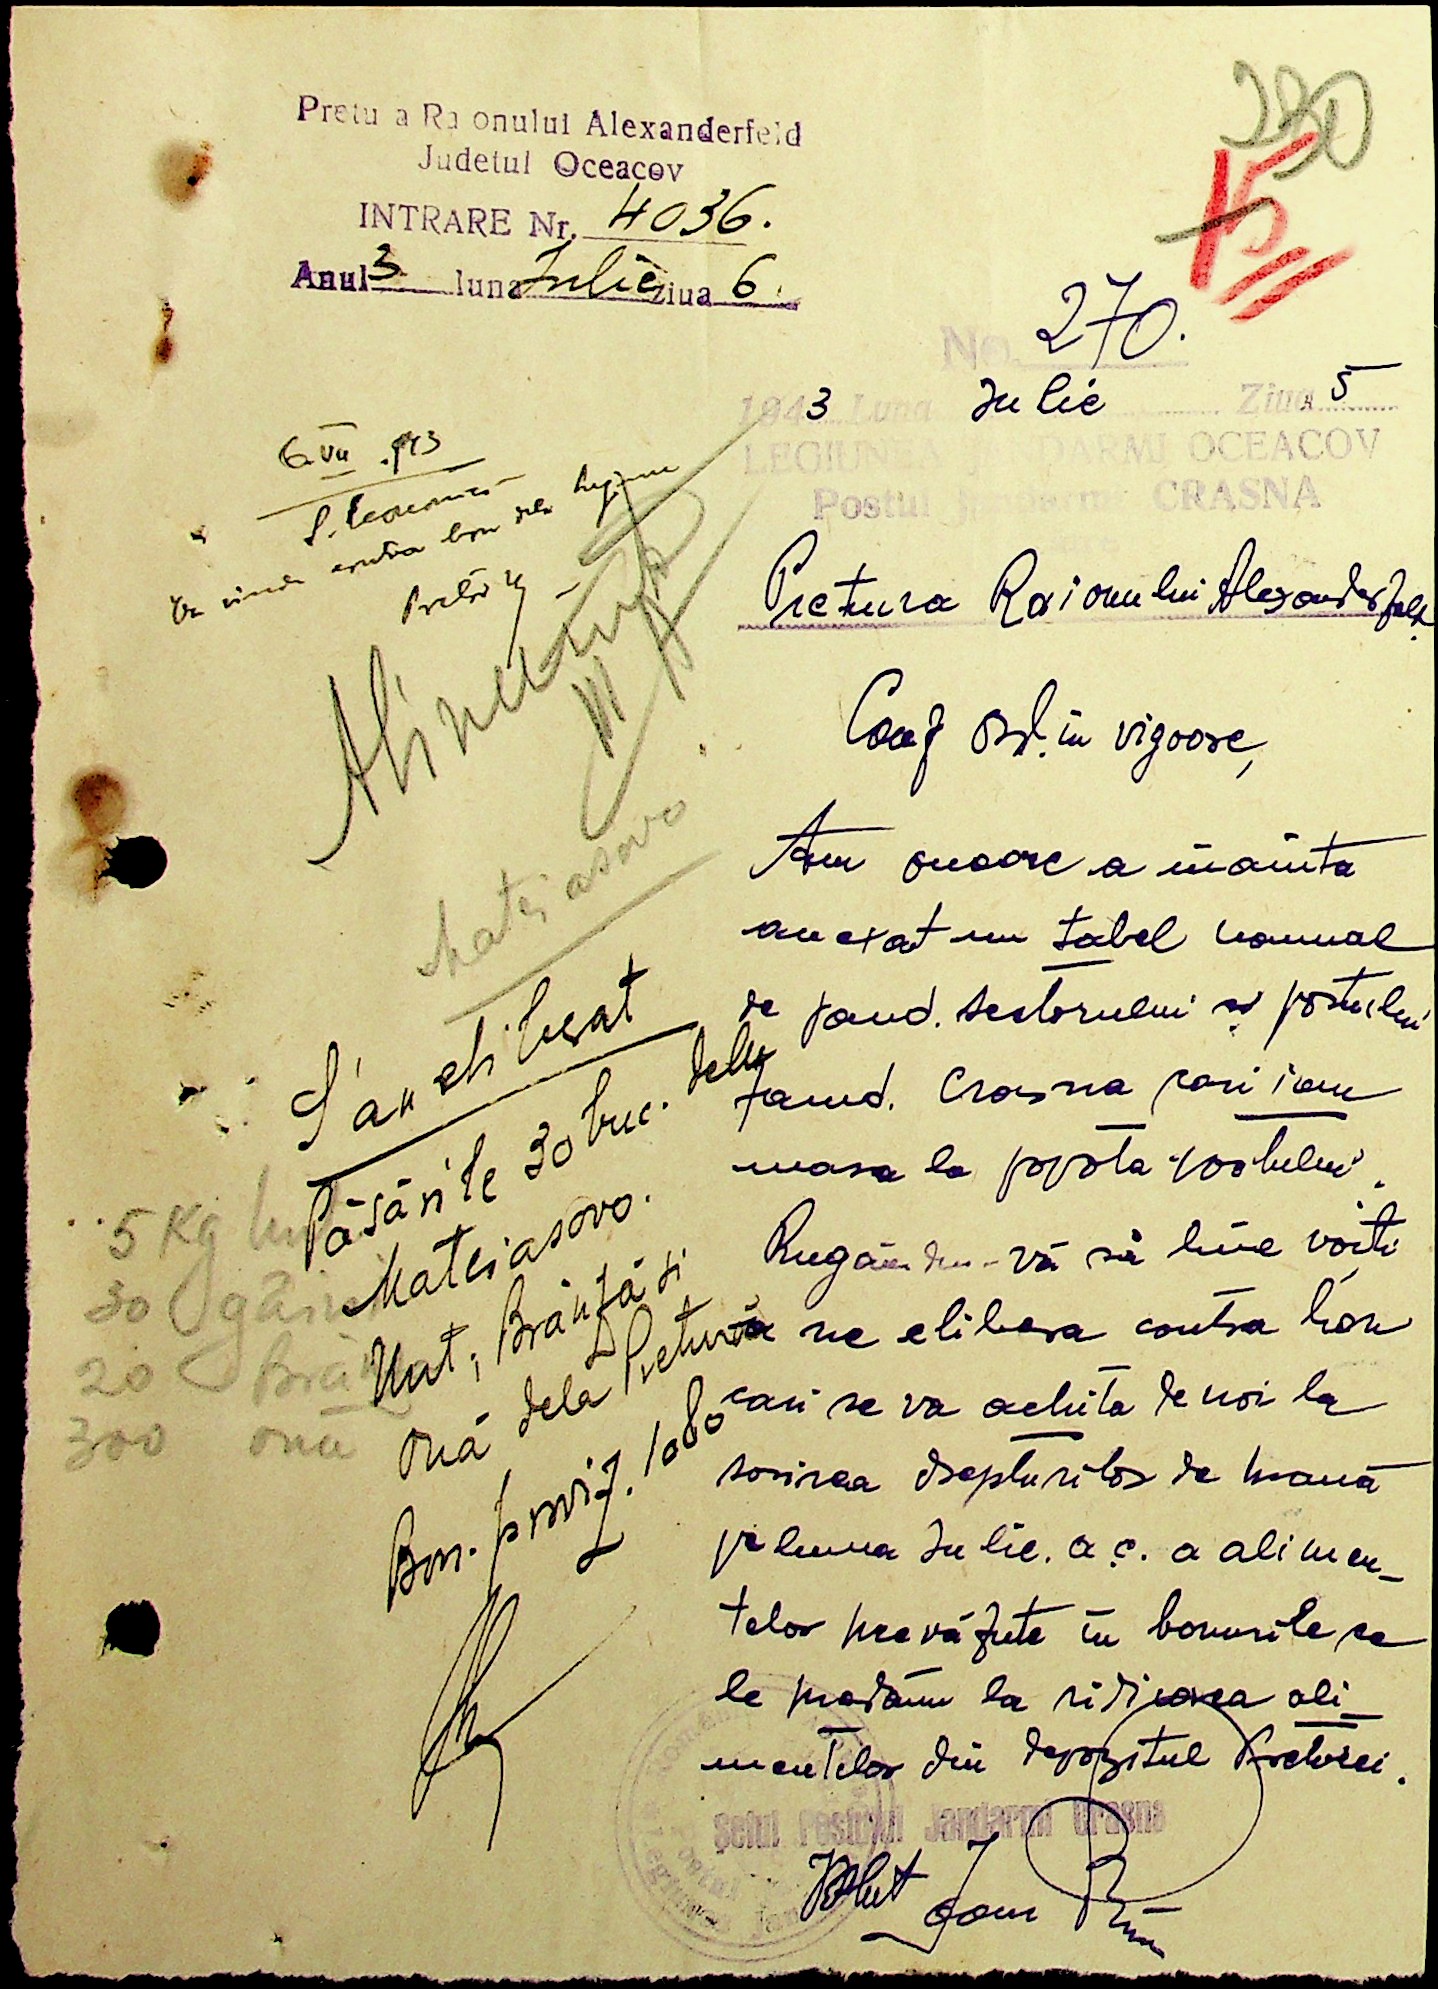 Pretu a Ra onului Alexanderfeld
Judetul Oceacov
INTRARE Nr. 4036.
Anul 3 luna Iulie ziua 6.
230
15
No. 270.
1943 Luna Iulie Ziua 5
LEGIUNEA JANDARMI OCEACOV
Postul Jandarmi CRASNA
6.VII.943
contra bon dela
Pretor
Pretura Raionului Alexanderfeld
Conf Ord. în vigoare,
Am onoare a înainta
anexat un tabel nominal
de jand. sectorului și postului
Jand. Crasna cari iau
masa la popota postului.
Rugându-vă să bine voiți
a ne elibera contra bon
cari se va achita de noi la
sosirea drepturilor de hrană
pe luna Iulie. a.c. a alimen-
telor prevăzute în bonurile ce
le predăm la ridicarea ali-
mentelor din depozitul Preturei.
Șeful Postului Jandarmi Crasna
Mateiasovo
S'au eliberat
Păsările 30 buc. dela
Mateiasovo.
Unt, Brânză și
Ouă dela Pretură
Bon. proviz. 1080
5 Kg unt
30 găini
20 Brânză
300 ouă